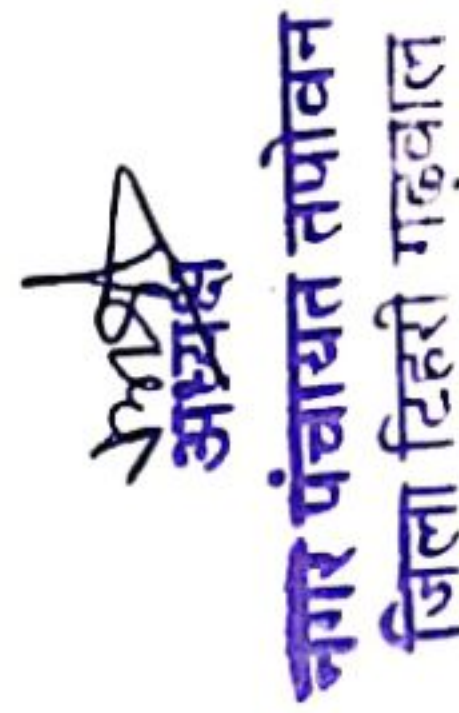 अध्यक्ष
नगर पंचायत तपोवन
जिला टिहरी गढ़वाल